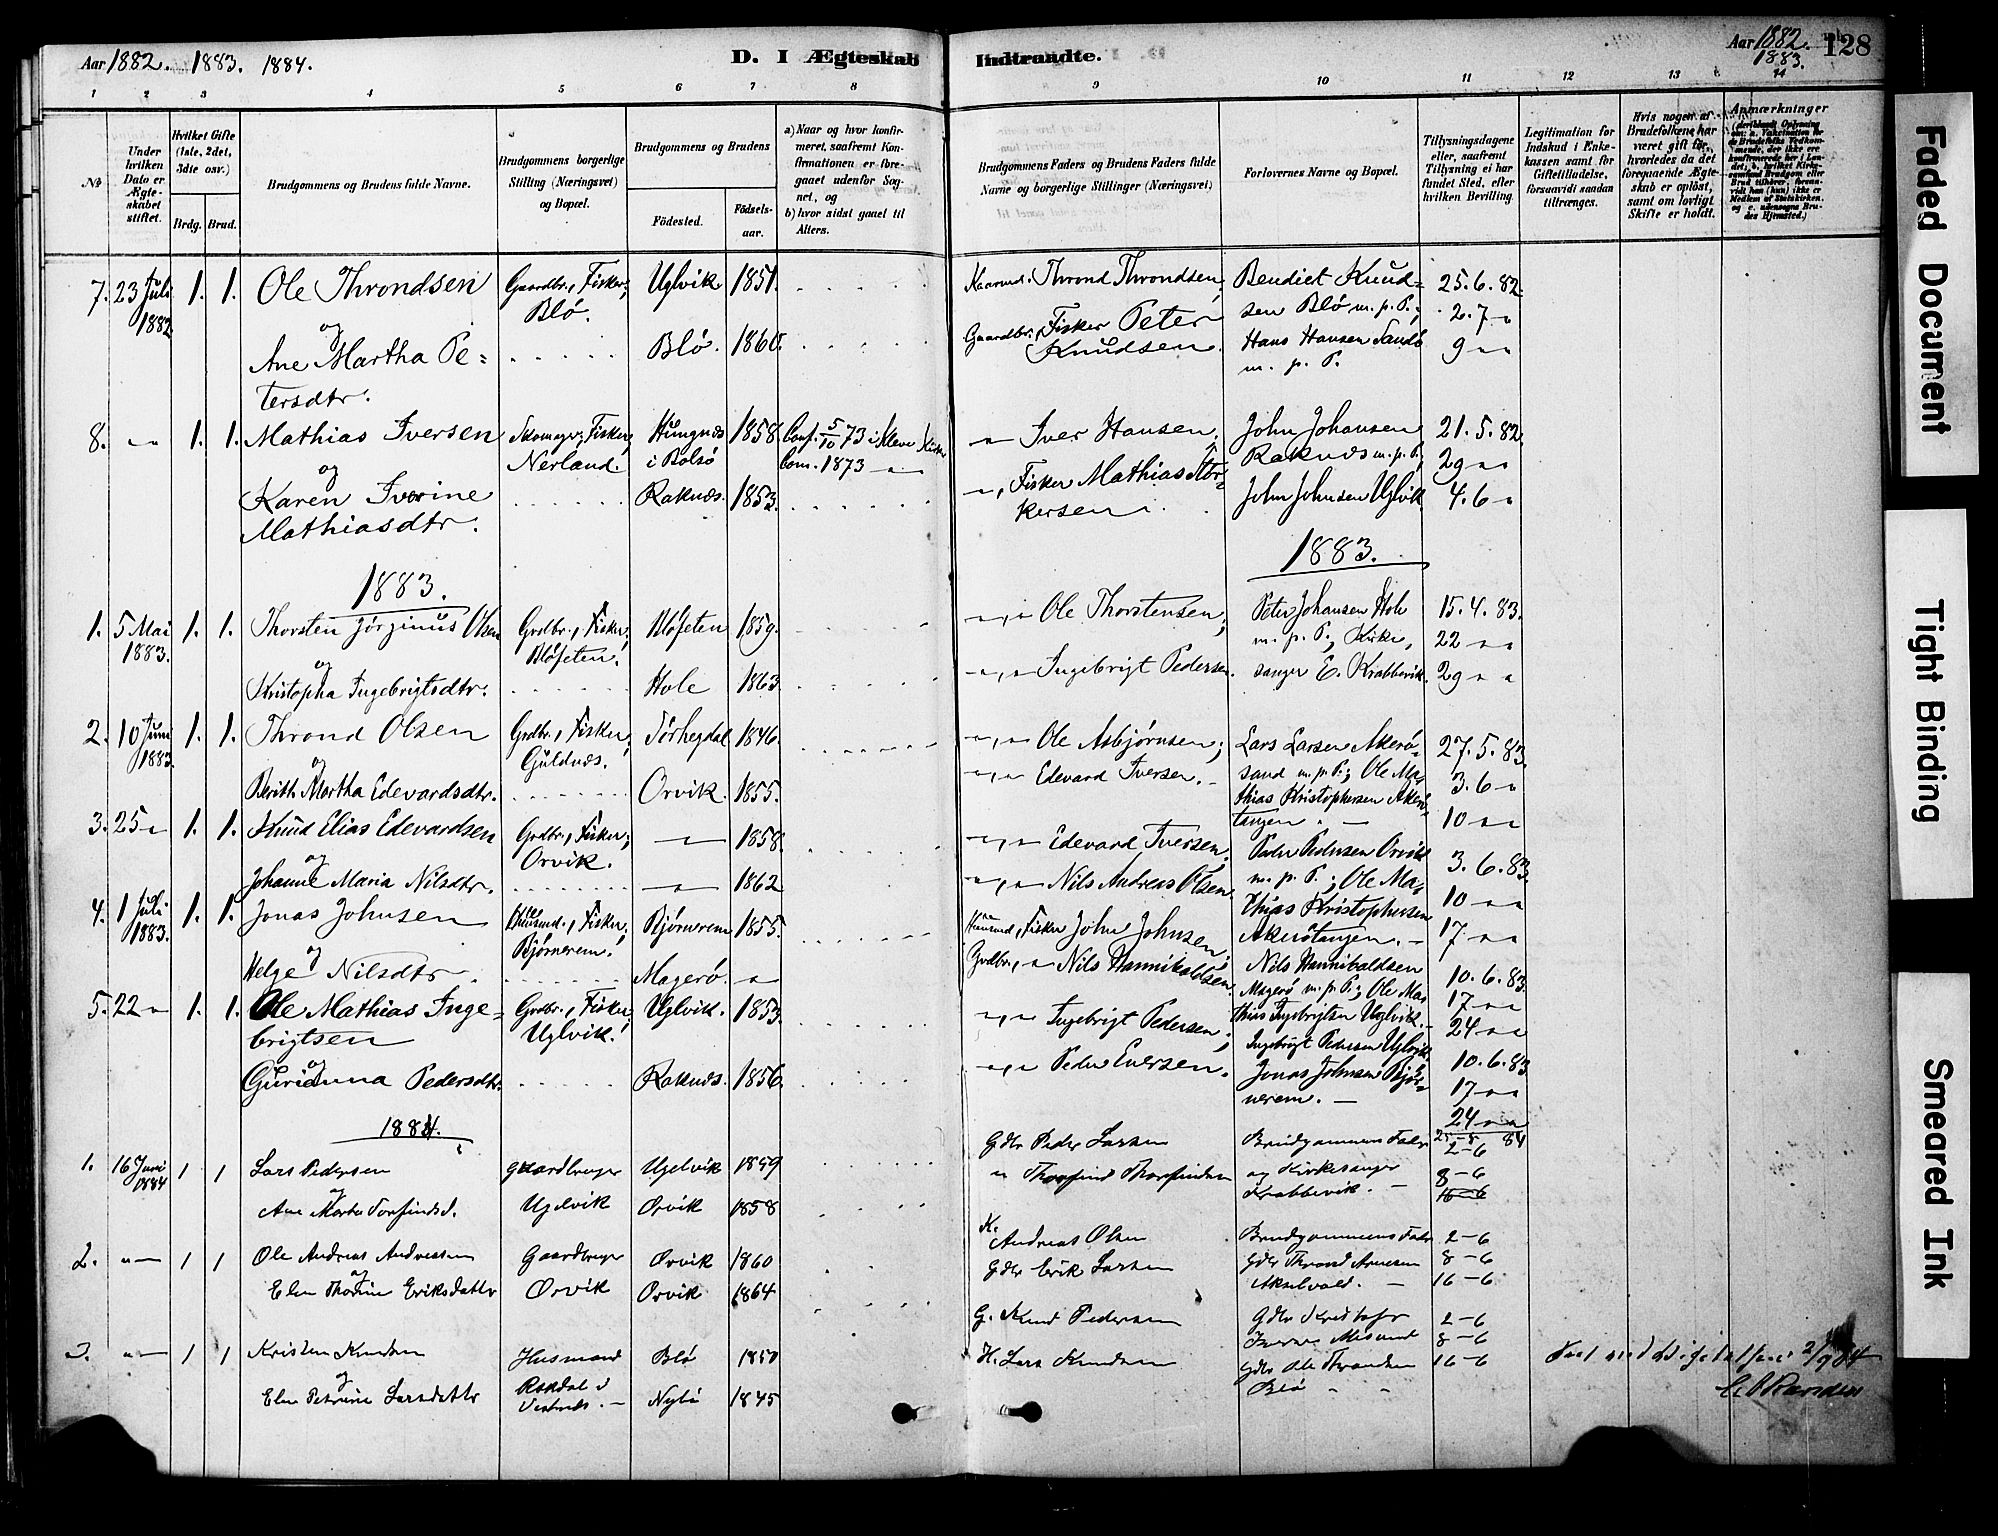 Aar 1882. 1883. 1884.
D. I Ægteskab Indtraadte.
Aar 1882. 1883.
128
1 2 3 4 5 6 7 8 9 10 11 12 13 14
No
Under hvilken Dato er Ægteskabet stiftet.
Hvilket Gifte (1ste, 2det, 3die osv.)
Brdg. Brud.
Brudgommens og Brudens fulde Navne.
Brudgommens borgerlige Stilling (Næringsvei) og Bopæl.
Brudgommens og Brudens
Födested.
Födselsaar.
a) Naar og hvor konfirmeret, saafremt Konfirmationen er foregaaet udenfor Sognet, og
b) hvor sidst gaaet til Alters.
Brudgommens Faders og Brudens Faders fulde Navne og borgerlige Stillinger (Næringsvei)
Forlovernes Navne og Bopæl.
Tillysningsdagene eller, saafremt Tillysning ei har fundet Sted, efter hvilken Bevilling.
Legitimation for Indskud i Enkekassen samt for Giftetilladelse, forsaavidt saadan tiltrænges.
Hvis nogen af Brudefolkene har været gift för, hvorledes da det foregaaende Ægteskab er oplöst, samt om lovligt Skifte er holdt.
Anmærkninger
7. 23 Juli 1882. 1. 1. Ole Throndsen Gaardbr., Fisker, Blö. Uglvik 1851. Thrond Throndsen, Bendict Knudsen Blö m. p. P., 25.6.82.
og
Ane Martha Petersdtr. Blö. 1860. Gaardbr., Fisker Peter Knudsen. Hans Hansen Sandö m. p. P. 2.7 "
9 " "
8. " " 1. 1. Mathias Iversen Fisker, Nerland. i Bolsö 1858. Conf. 5/10 73 i Kleve Kirke Iver Hansen, John Johansen Raknæs m. p. P., 21.5.82.
Com. 1873 " "
og
Karen Iverine Mathiasdtr. Raknæs. 1853. Fisker Mathias John Johnsen Uglvik 29 " "
4.6 "
1883.
1883.
1. 5 Mai 1883. 1. 1. Thorsten Jörginus Olsen Grdbr., Fisker, Blöfeten. Blöfeten 1859. Ole Thorstensen, Peter Johansen Hole m. p. P., Kirke, 15.4.83.
og
Kristopha Ingebrigtsdtr. Hole 1863. Ingebrigt Pedersen. sanger E. Krabbevik. 22 " "
29 " "
2. 10 Juni 1883. 1. 1. Thrond Olsen Grdbr., Fisker, Guldnæs. Törhegdal 1846. Ole Asbjörnsen, Lars Larsen Akerösund m. p. P., 27.5.83.
og
Berith Martha Edevardsdtr. Orvik. 1855. Edevard Iversen. Ole Mathias Kristophersen Akerötangen. 3.6 "
10 " "
3. 25 " 1. 1. Knud Elias Edevardsen Grdbr., Fisker, Orvik. " 1858. Edevard Iversen, Peder Pedersen Orvik m. p. P., 3.6.83.
og
Johanne Maria Nilsdtr. " 1862 Nils Andreas Olsen. Ole Mathias Kristophersen Akerötangen. 10 " "
17 " "
4. 1 Juli 1883. 1. 1. Jonas Johnsen Husmd., Fisker, Björnerem. Björnerem 1855. Husmd., Fisker John Johnsen, Nils Hannibaldsen Magerö m. p. P., 10.6.83.
og
Helge Nilsdtr. Magerö. " Grdbr., " Nils Hannibaldsen. Ole Mathias Ingebrigtsen Uglvik. 17 " "
24 " "
5. 22 " 1. 1. Ole Mathias Ingebrigtsen Grdbr., Fisker, Uglvik. Uglvik. 1853. Ingebrigt Pedersen, Ingebrigt Pedersen Uglvik, 10.6.83
og
Gurianna Pedersdtr. Raknæs. 1856. Peder Eversen. Jonas Johnsen Björnerem. 17 " "
24 " "
1884.
1. 16 Juni 1884 1 1 Lars Pedersen Gaardbruger Ugelvik Ugelvik 1859 Gdbr Peder Larsen Brudgommens Fader 84
2-6
og
Ane Marta Torfindsd. Orvik 1858 " Thorfind Thorfindsen og Kirkesanger Krabbevik. 8-6
16-6
2. " " 1 1 Ole Andreas Andreassen Gaardbruger Orvik Orvik 1860 K. Andreas Olsen Brudgommens Fader 2-6
og
Elen Eriksdatter Orvik 1864 Gdbr Erik Larsen Gdbr Thrond Arnesen Akselvold. 8-6
16-6
3. " " 1 1 Kristen Knudsen Husmand Blö 1850 G. Knud Pedersen Gdbr Kristofer 2-6
og
Elen Petrine Larsdatter Nylö 1845 H. Lars Knudsen Gdbr Ole Throndsen Blö 8-6
16-6
2/9 84
Faded Document
Tight Binding
Smeared Ink